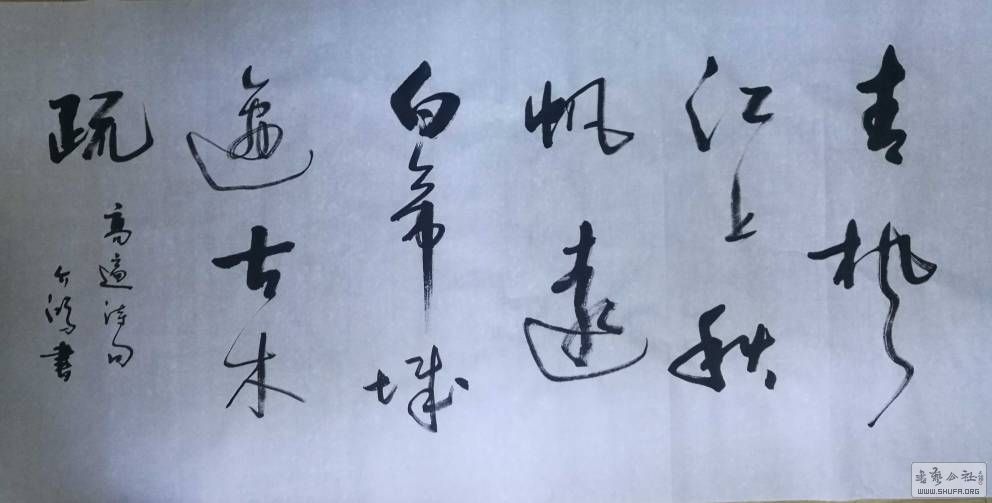 青枫
江上秋
帆遠
白帝城
邊古木
疏
高適诗句
鸿書
書藝公社
WWW.SHUFA.ORG